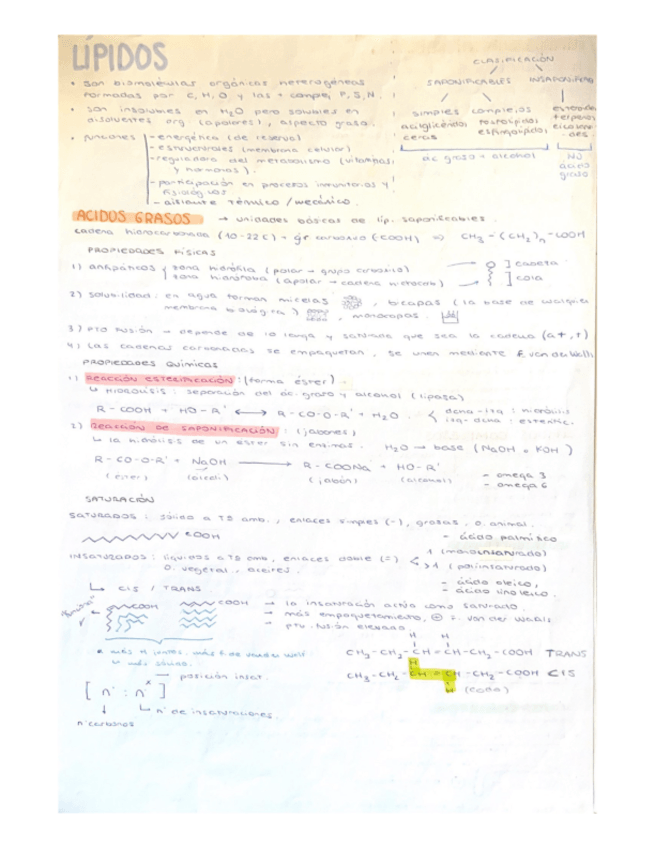 LÍPIDOS
• son biomoléculas orgánicas heterogéneas
formadas por C, H, O y las + compe, P, S, N.
• son insolubles en H2O pero solubles en
disolventes org (apolares), aspecto graso.
• funciones
- energética (de reserva)
- estructurales (membrana celular)
- reguladora del metabolismo (vitaminas
y hormonas).
- participación en procesos inmunitarios y
fisiológicos
- aislante térmico / mecánico.
CLASIFICACIÓN
SAPONIFICABLES INSAPONIFICA
simples complejos
acilglicéridos fosfolípidos
ceras esfingolípidos
esteroides
terpenos
eicosanoi-
des
ác graso + alcohol
NO
ácido
graso
ACIDOS GRASOS → unidades básicas de líp. saponificables.
cadena hidrocarbonada (10-22C) + gr carboxilo (-COOH) ⇒ CH3-(CH2)n-COOH
PROPIEDADES FÍSICAS
1) anfipáticos
zona hidrófila (polar → grupo carboxilo)
zona hidrófoba (apolar → cadena hidrocarb)
] cabeza
] cola
2) solubilidad: en agua forman micelas, bicapas (la base de cualquier
membrana biológica), monocapas.
3) PTO FUSIÓN → depende de lo larga y saturada que sea la cadena (a+, ↑)
4) Las cadenas carbonadas se empaquetan, se unen mediante F. van der Walls
PROPIEDADES QUÍMICAS
1) REACCIÓN ESTERIFICACIÓN: (forma éster)
↳ HIDRÓLISIS: separación del ác. graso y alcohol (lipasa)
R-COOH + HO-R' ⟷ R-CO-O-R' + H2O
dcha-izq: hidrólisis
izq-dcha: esterific.
2) REACCIÓN DE SAPONIFICACIÓN: (jabones)
↳ la hidrólisis de un ester sin enzimas. H2O → base (NaOH = KOH)
R-CO-O-R' + NaOH ⟶ R-COONa + HO-R'
(ester) (alcali) (jabón) (alcohol)
- omega 3
- omega 6
SATURACIÓN
SATURADOS: sólido a Tª amb., enlaces simples (-), grasas, o. animal.
COOH
- ácido palmítico
INSATURADOS: líquidos a Tª amb, enlaces doble (=)
O. vegetal, aceites.
1 (monoinsaturado)
>1 (poliinsaturado)
- ácido oleico,
- ácido linoleico.
↳ CIS / TRANS
COOH COOH
→ la insaturación actúa como saturado.
→ más empaquetamiento, ⊕ F. van der Waals
→ pto. fusión elevado
más F de van der wall
↳ más sólido.
H H
CH3-CH2-CH=CH-CH2-COOH TRANS
H
CH3-CH2-CH=CH-CH2-COOH CIS
H
→ posición insat.
[ nº : nº x ]
↳ nº de insaturaciones.
nº carbonos